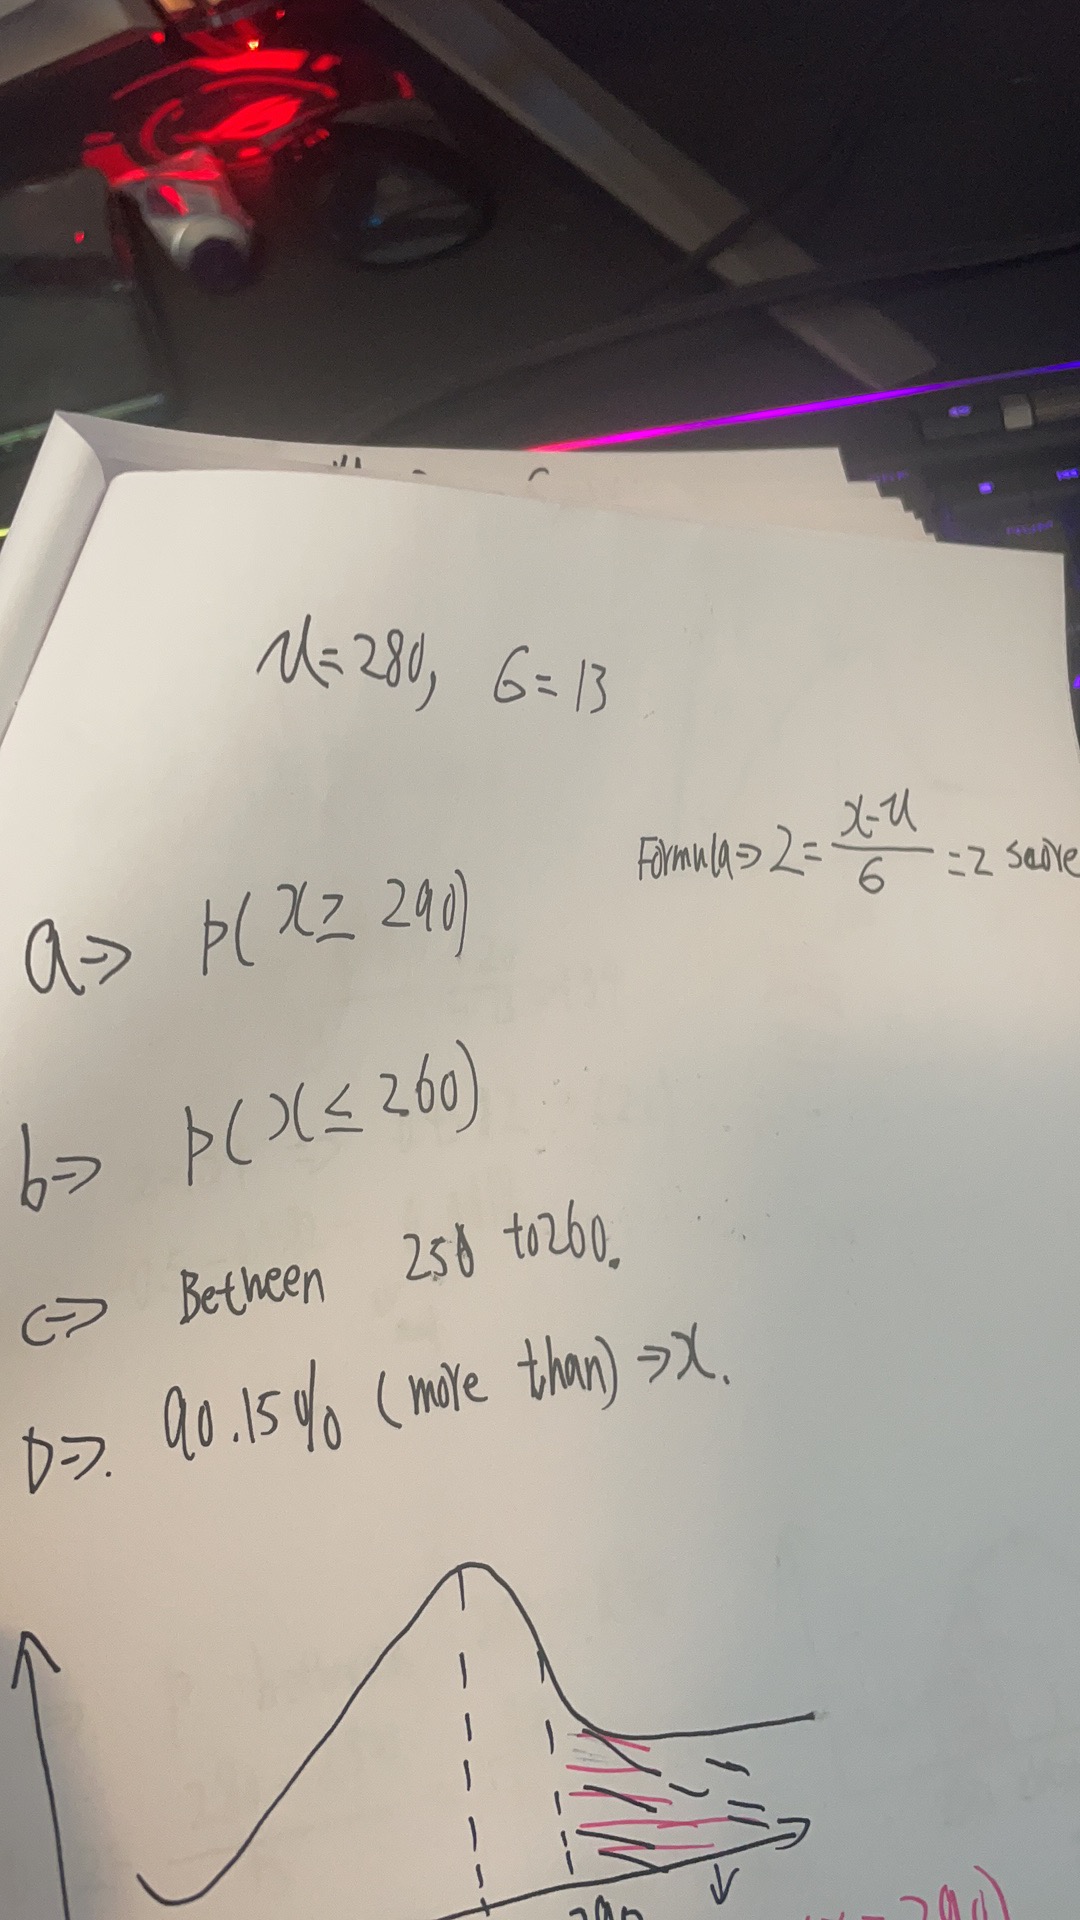 μ=280, σ=13
Formula⇒ Z= x-μ/σ =Z score
a⇒ P(x≥ 290)
b⇒ P(x≤ 260)
c⇒ Between 250 to 260.
D⇒. 90.15% (more than) ⇒x.
290
290)